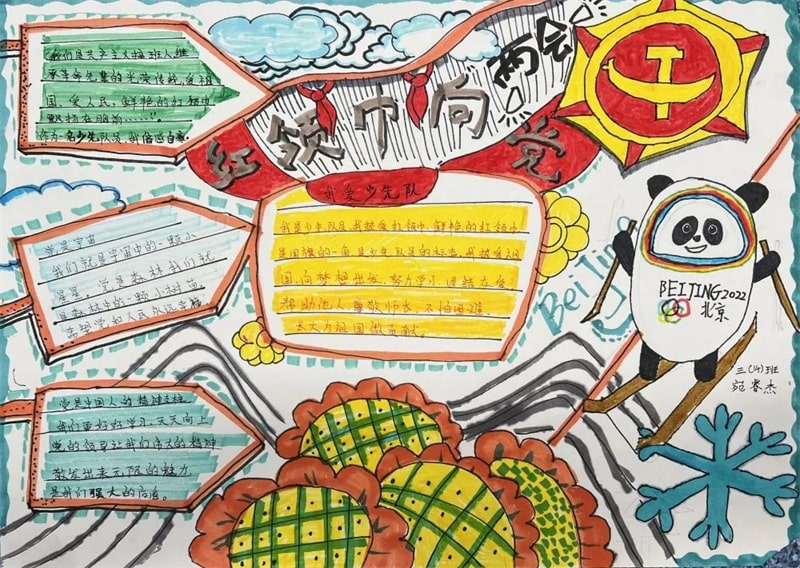 红领巾向党
两会
我们是共产主义接班人继
承革命先辈的光荣传统,爱祖
国、爱人民,鲜艳的红领巾
飘扬在胸前……。
作为一名少先队员,我倍感自豪。
我爱少先队
我是少年队员,我热爱红领巾,鲜艳的红领巾
是国旗的一角,是少年队员的标志,我热爱祖
国,向梦想出发,努力学习,团结友爱
帮助他人,尊敬师长,不怕困难
长大为祖国做贡献。
党是宇宙
我们就是宇宙中的一颗小
星星,党是森林我们就
是森林中的一颗小树苗
希望党和人民永远幸福
党是中国人的精神支柱
我们要好好学习,天天向上
党的领导让我们伟大的精神
散发出来无限的魅力
是我们强大的后盾。
Beijing
BEIJING2022
北京
三(14)班
宛睿杰